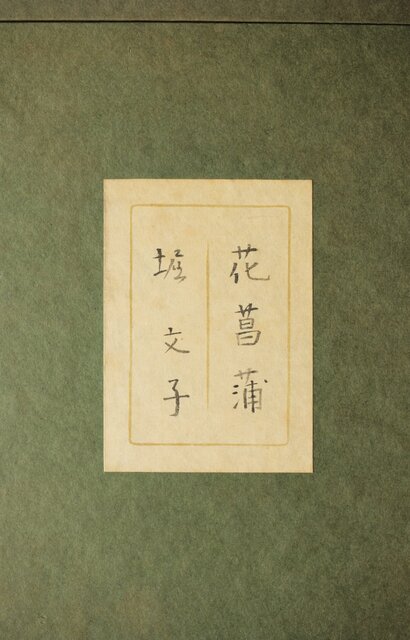 花菖蒲
堀文子